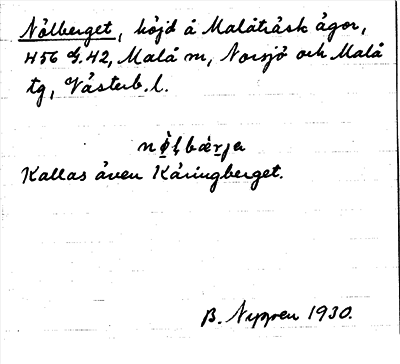 Nölberget, höjd å Malåträsk ägor,
456 G.42, Malå sn, Norsjö och Malå
tg, Västerb. l.
Kallas även Käringberget.
B. Nyman 1930.